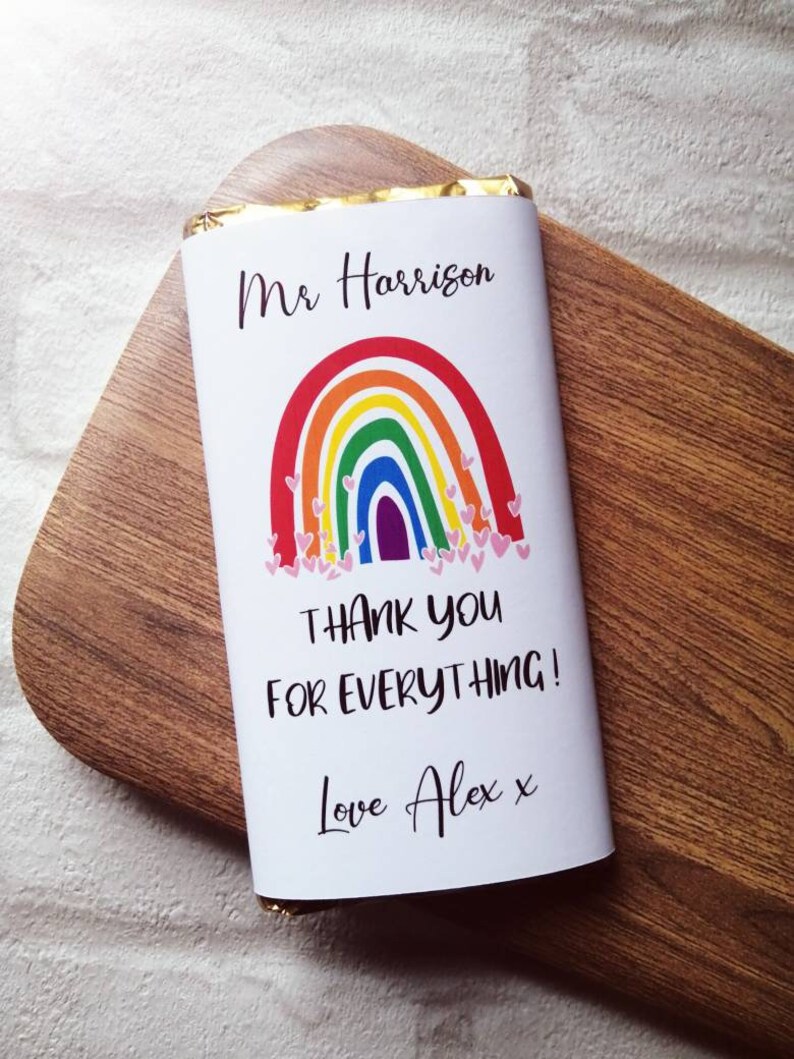 Mr Harrison
THANK YOU
FOR EVERYTHING!
Love Alex x